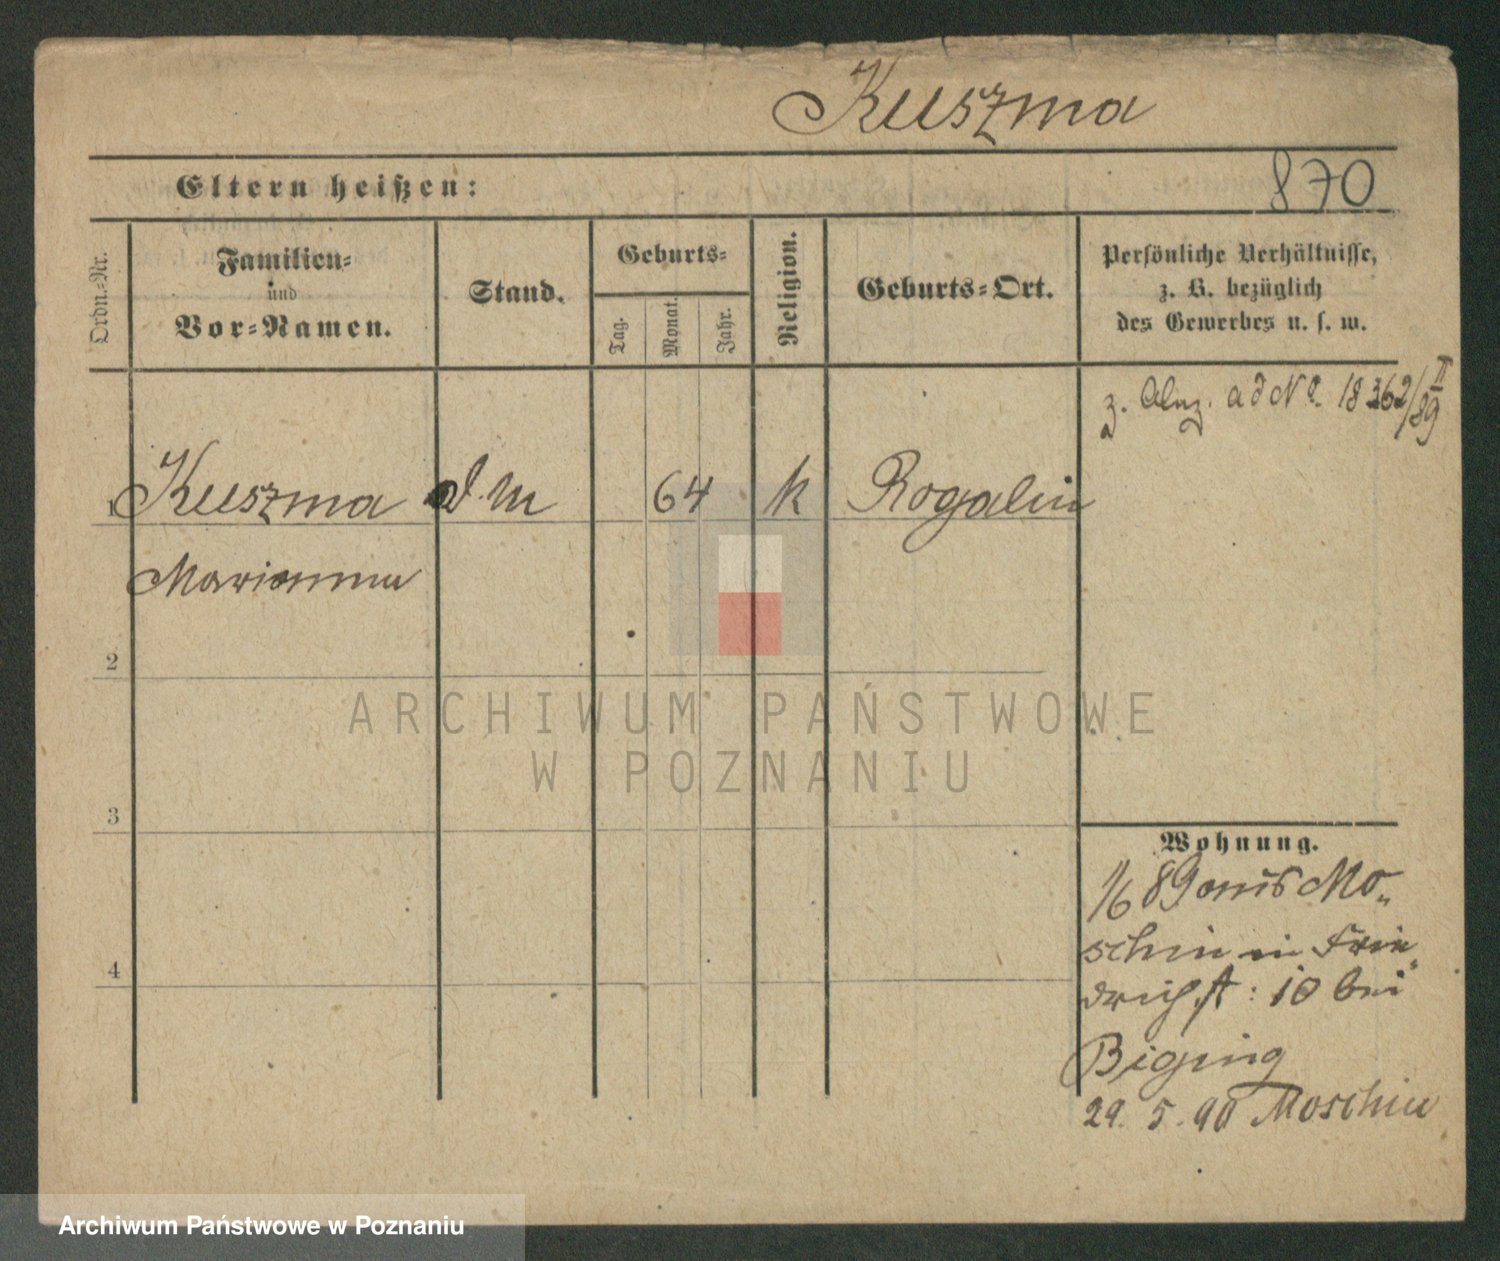 Kuszma
870
Eltern heißen:
Ordn.-Nr.
Familien-
und
Vor-Namen.
Stand.
Geburts-
Tag.
Monat.
Jahr.
Religion.
Geburts-Ort.
Persönliche Verhältnisse,
z. B. bezüglich
des Gewerbes u. s. w.
z. Anz. ad No. 18362/II 89
1 Kuszma D. M 64 k Rogalin
Marianna
2
3
4
ARCHIWUM PAŃSTWOWE
W POZNANIU
Wohnung.
1/6 89 aus Mo-
schin in Frie-
drichst: 10 bei
Biging
29. 5. 90 Moschin
Archiwum Państwowe w Poznaniu